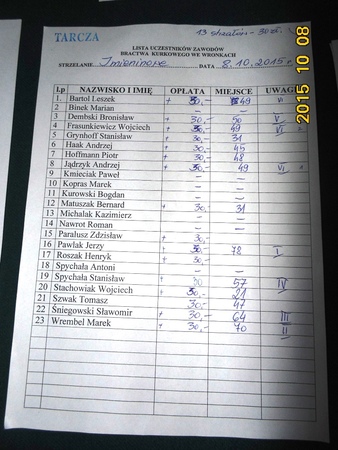 TARCZA
13 strzałów - 30 zł.
LISTA UCZESTNIKÓW ZAWODÓW
BRACTWA KURKOWEGO WE WRONKACH
STRZELANIE Imieninowe DATA 8.10.2015 r
Lp NAZWISKO I IMIĘ OPŁATA MIEJSCE UWAGI
1. Bartol Leszek + 30,- 49 VI
2 Binek Marian – –
3 Dembski Bronisław + 30,- 50 V
4 Frasunkiewicz Wojciech + 30,- 49 VI
5 Grynhoff Stanisław + 30,- 31
6 Haak Andrzej + 30,- 45
7 Hoffmann Piotr + 30,- 48
8 Jądrzyk Andrzej + 30,- 49 VI
9 Kmieciak Paweł – –
10 Kopras Marek – –
11 Kurowski Bogdan – –
12 Matuszak Bernard + 30,- 31
13 Michalak Kazimierz – –
14 Nawrot Roman – –
15 Paralusz Zdzisław + 30,-
16 Pawlak Jerzy + 30,- 78 I
17 Roszak Henryk + 30,-
18 Spychała Antoni – –
19 Spychała Stanisław 30 57 IV
20 Stachowiak Wojciech 30,- 21
21 Szwak Tomasz 30,- 47
22 Śniegowski Sławomir + 30,- 64 III
23 Wrembel Marek + 30,- 70 II
2015 10 08